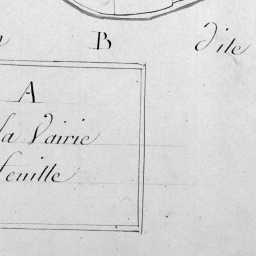 B dite
A
la Vairie
feuille